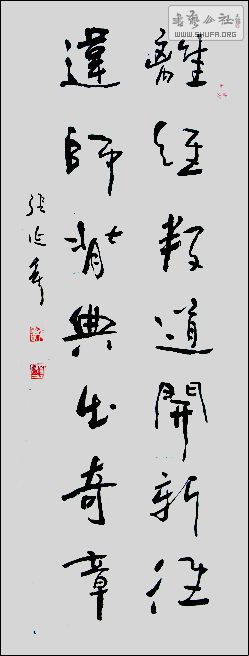 離經叛道開新徑
違師背典出奇章
張延
书艺公社
WWW.SHUFA.ORG